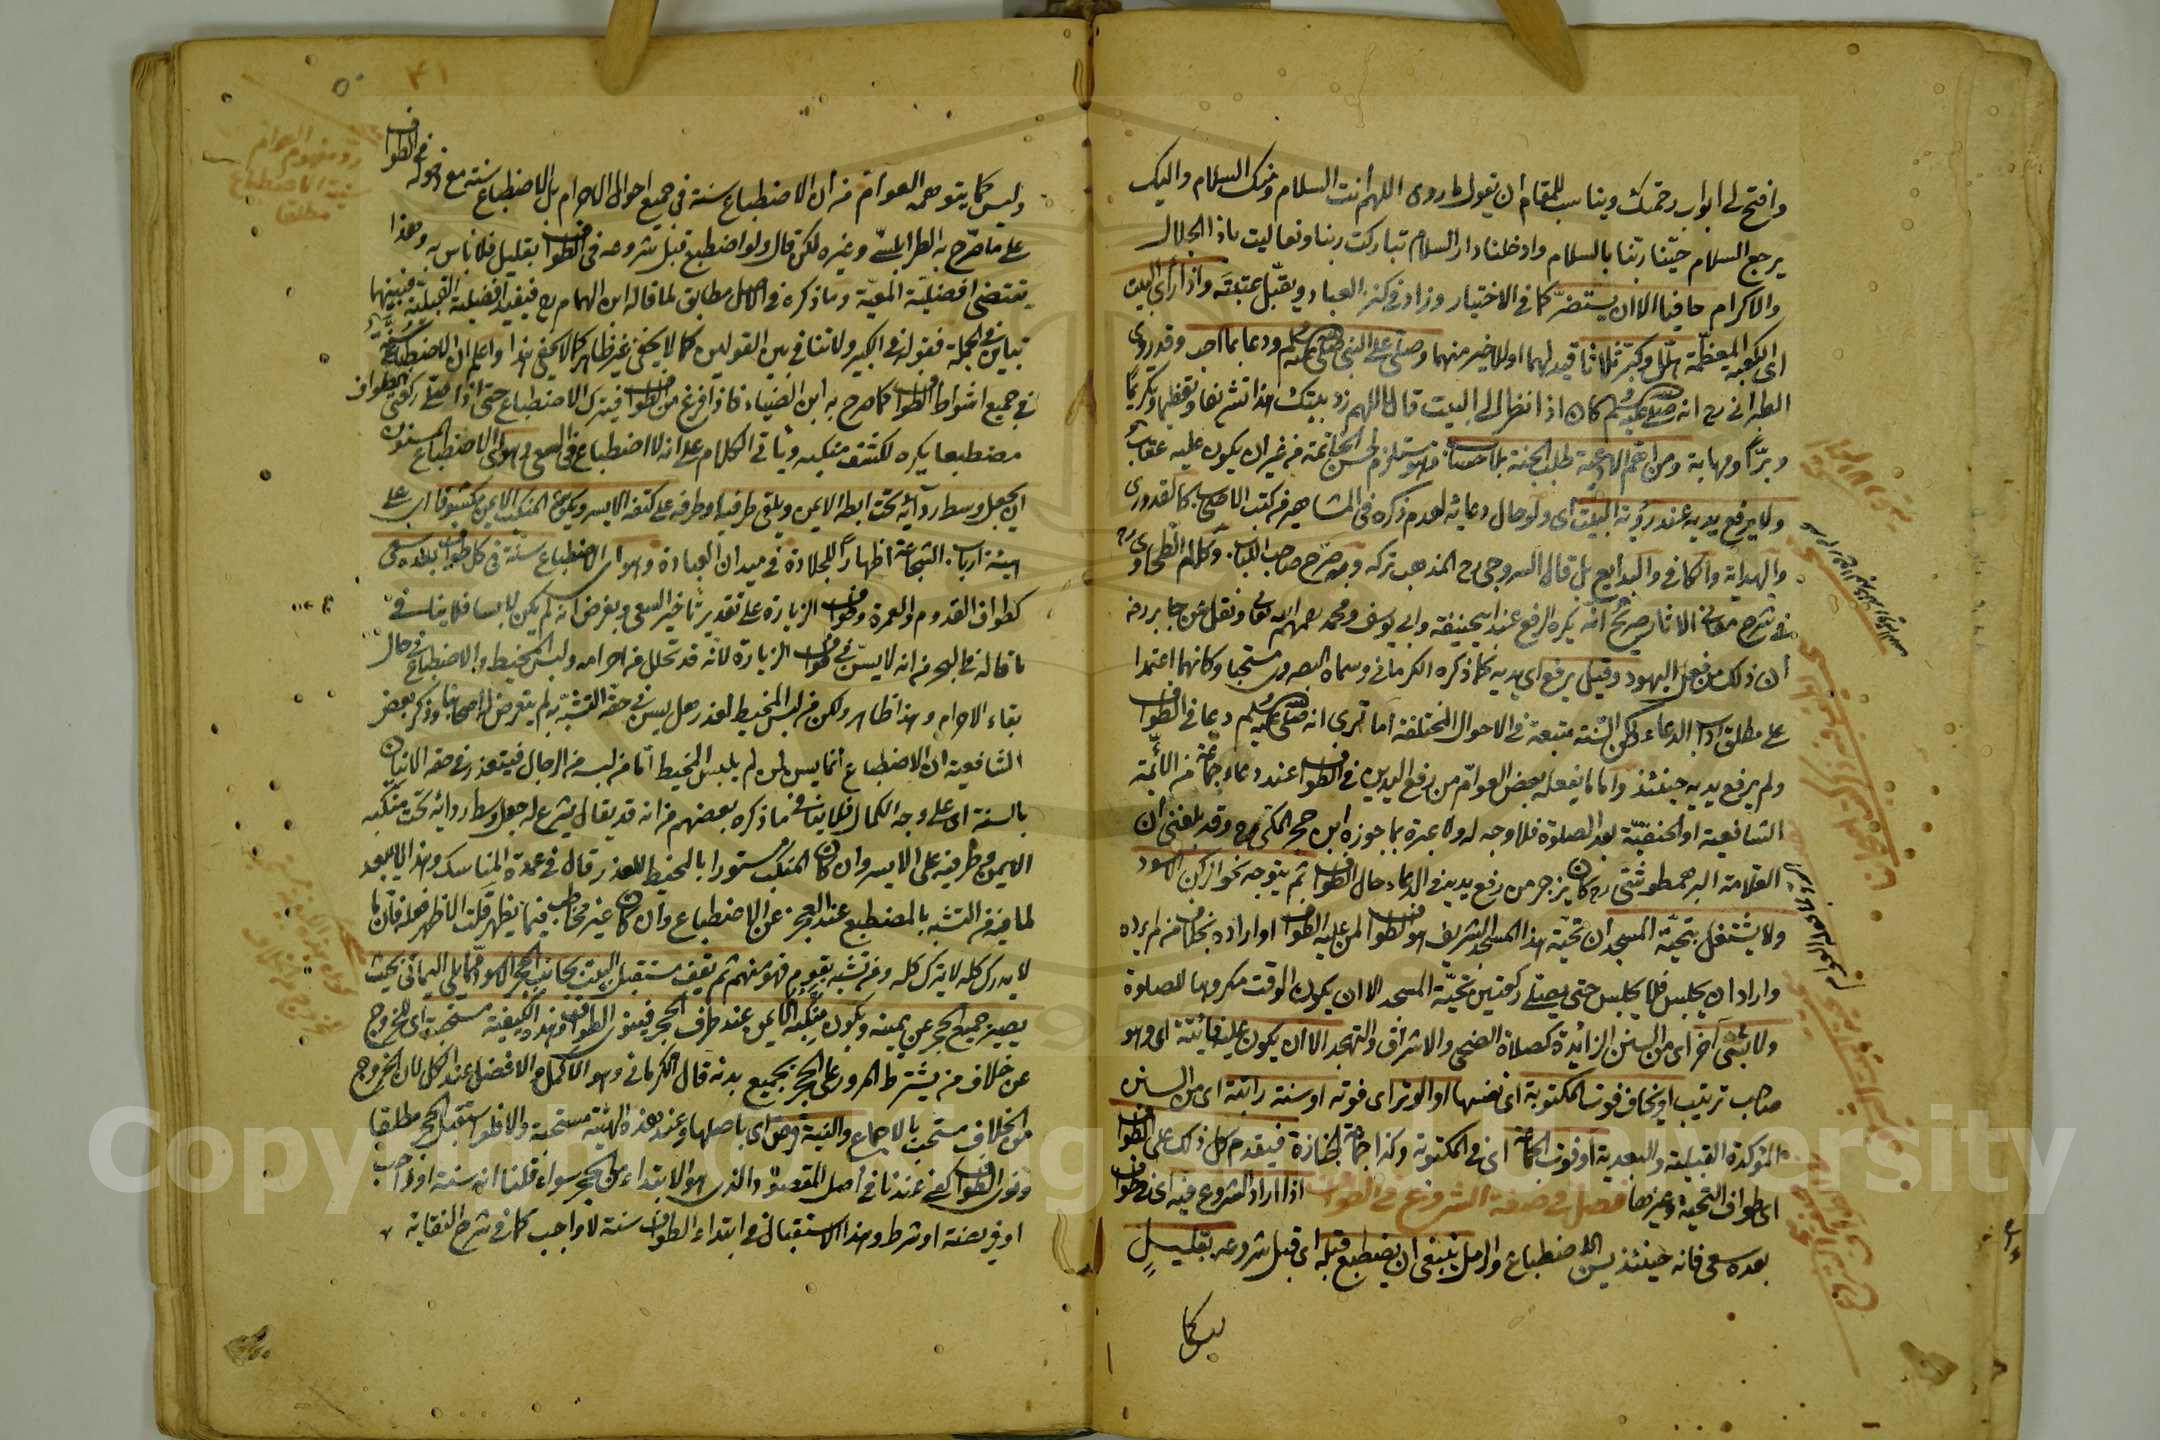 وافتح لي ابواب رحمتك ويناسب للمقام ان يقول ما روى اللهم أنت السلام ومنك السلام واليك
يرجع السلام حيّنا ربّنا بالسلام وادخلنا دار السلام تباركت ربنا وتعاليت ياذا الجلال
والاكرام حافيا الا ان يستضرّ كما في الاختيار وزاد في كنز العباد ويقبّل عتبته واذا رأى البيت
اي الكعبة المعظمة هلّل وكبّر ثلاثا قيد لهما او للاخير منهما وصلى على النبي صلى الله عليه وسلم ودعا بما احب وقد روى
الطبراني رح انه صلى الله عليه وسلم كان اذا نظر الى البيت قال اللهم زد بيتك هذا تشريفا وتعظيما وتكريما
وبرّا ومهابة ومن اهم الادعية طلب الجنة بلا حساب فهو مستلزم لحسن الخاتمة من غير ان يكون عليه عقاب
ولا يرفع يديه عند رؤية البيت اي ولو حال دعائه لعدم ذكره في المشاهير من كتب الاصحاب كالقدوري
والهداية والكافي والبدايع بل قال السروجي رح المذهب تركه وبه صرّح صاحب اللباب وكلام الطحاوي رح
في شرح معاني الاثار صريح انه يكره الرفع عند ابي حنيفة وابي يوسف ومحمد رحمهم الله تعالى ونقل عن جابر رضه
أن ذلك من فعل اليهود وقيل يرفع اي يديه كما ذكره الكرماني وسماه البصروي مستحبا وكانهما اعتمدا
على مطلق اداب الدعاء ولكن السنة متبعة في الاحوال المختلفة اما ترى انه صلى الله عليه وسلم دعا في الطواف
ولم يرفع يديه حينئذ واما ما يفعله بعض العوام من رفع اليدين في الطواف عند دعاء جماعة من الائمة
الشافعية او الحنفيّة بعد الصلوة فلا وجه له ولا عبرة بما جوزه ابن حجر المكي رح وقد بلغني ان
العلامة البرهمطوشي رح كان يزجر من رفع يديه في الدعاء حال الطواف ثم يتوجه نحو الركن الاسود
ولا يشتغل بتحية المسجد لان تحية هذا المسجد الشريف هو الطواف لمن عليه الطواف او اراده بخلاف من لم يرده
واراد ان يجلس فلا يجلس حتى يصلي ركعتين تحيّة المسجد الا ان يكون الوقت مكروها للصلوة
ولا بشئ آخر اي من السنن الزائدة كصلاة الضحى والاشراق والتهجد الا ان يكون عليه فائتة اي وهو
صاحب ترتيب او يخاف فوت المكتوبة اي نفسها او الوتر اي فوته او سنة راتبة اي من السنن
المؤكدة القبلية والبعدية او فوت الجماعة اي في المكتوبة وكذا جماعة الجنازة فيقدم كل ذلك على الطواف
اي طواف التحية وغيرها فصل في صفة الشروع في الطواف اذا اراد الشروع فيه اي في طواف
بعده سعي فانه حينئذ يسن الاضطباع والرمل ينبغي ان يضطبع قبله اي قبل شروعه بقليل
وليس كما
وليس كما يتوهمه العوام من أن الاضطباع سنة في جميع احوال الاحرام بل الاضطباع سنة مع دخوله في الطواف
على ما صرّح به الطرابلسي وغيره لكن قال ولو اضطبع قبل شروعه في الطواف بقليل فلا باس به وهذا
يقتضي افضلية المعيّة وما ذكره في الاصل مطابق لما قاله ابن الهمام رح فيفيد افضلية القبلية فبينهما
تباين في الجملة فقوله في الكبير ولا تنافي بين القولين كما لا يخفى غير ظاهر كما لا يخفى هذا واعلم ان الاضطباع سنة
في جميع اشواط الطواف كما صرح به ابن الضياء فاذا فرغ من الطواف فيترك الاضطباع حتى اذا صلى ركعتي الطواف
مضطبعا يكره لكشف منكبه ويأتي الكلام على انه لا اضطباع في السعي وهو اي الاضطباع المسنون
ان يجعل وسط ردآئه تحت ابطه الايمن ويلقي طرفيه او طرفه على كتفه الايسر ويكون المنكب الايمن مكشوفا اي على
هيئة ارباب الشجاعة اظهارا للجلادة في ميدان العبادة وهو اي الاضطباع سنة في كل طواف بعده سعي
كطواف القدوم والعمرة وطواف الزيارة على تقدير تأخير السعي وبفرض انه لم يكن لابسا فلا ينافي
ما قاله في البحر من انه لا يسن في طواف الزيارة لأنه قد تحلل من احرامه ولبس المخيط والاضطباع في حال
بقاء الاحرام وهذا ظاهر ولكن من لبس المخيط لعذر هل يسن في حقه التشبه به لم يتعرض له اصحابنا وذكر بعض
الشافعية ان الاضطباع انما يسن لمن لم يلبس المخيط اما من لبسه من الرجال فيتعذر في حقه الاتيان
بالسنة اي على وجه الكمال فلا ينافي ما ذكره بعضهم من انه قد يقال يشرع له جعل وسط ردائه تحت منكبه
الايمن وطرفيه على الايسر وان كان المنكب مستورا بالمخيط للعذر قال في عمدة المناسك وهذا لا يبعد
لما فيه من التشبه بالمضطبع عند العجز عن الاضطباع وان كان غير مخاطب فيما يظهر قلت الاظهر فعله فان ما
لا يدرك كله لا يترك كله ومن تشبه بقوم فهو منهم ثم يقف مستقبل البيت بجانب الحجر الاسود مما يلي اليماني بحيث
يصير جميع الحجر عن يمينه ويكون منكبه الايمن عند طرف الحجر فينوي الطواف وهذه الكيفية مستحبة اي للخروج
عن خلاف من يشترط المرور على الحجر بجميع بدنه قال الكرماني وهو الاكمل والافضل عند الكل لان الخروج
من الخلاف مستحب بالاجماع والنية فرض اي باصلها وعند هذه الهيئة مستحبة والا فلو استقبل الحجر مطلقا
ونوى الطواف كفى عندنا في اصل المقصود الذي هو الابتداء من الحجر سواء قلنا انه سنة او واجب
او فريضة او شرط وهذا الاستقبال في ابتداء الطواف سنة لا واجب كما في شرح النقاية
رد مفهوم العوام
سنية الاضطباع
مطلقا
٤١
Copyright © King Saud University